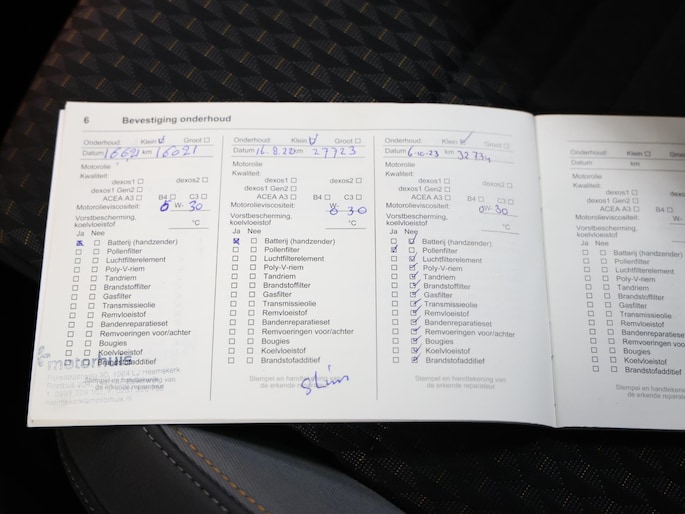 6 Bevestiging onderhoud
Onderhoud: Klein Groot
Datum 16621 km 16021
Motorolie
Kwaliteit:
dexos1 dexos2
dexos1 Gen2
ACEA A3 B4 C3
Motorolieviscositeit: 0 W- 30
Vorstbescherming,
koelvloeistof °C
Ja Nee
Batterij (handzender)
Pollenfilter
Luchtfilterelement
Poly-V-riem
Tandriem
Brandstoffilter
Gasfilter
Transmissieolie
Remvloeistof
Bandenreparatieset
Remvoeringen voor/achter
Bougies
Koelvloeistof
Brandstofadditief
motorhuis
Stempel en handtekening van
de erkende reparateur
Onderhoud: Klein Groot
Datum 16.8.22 km 27723
Motorolie
Kwaliteit:
dexos1 dexos2
dexos1 Gen2
ACEA A3 B4 C3
Motorolieviscositeit: W-
0 30
Vorstbescherming,
koelvloeistof °C
Ja Nee
Batterij (handzender)
Pollenfilter
Luchtfilterelement
Poly-V-riem
Tandriem
Brandstoffilter
Gasfilter
Transmissieolie
Remvloeistof
Bandenreparatieset
Remvoeringen voor/achter
Bougies
Koelvloeistof
Brandstofadditief
Stempel en handtekening van
de erkende reparateur
Onderhoud: Klein Groot
Datum 6-10-23 km 32734
Motorolie
Kwaliteit:
dexos1 dexos2
dexos1 Gen2
ACEA A3 B4 C3
Motorolieviscositeit: 0W-30
Vorstbescherming,
koelvloeistof °C
Ja Nee
Batterij (handzender)
Pollenfilter
Luchtfilterelement
Poly-V-riem
Tandriem
Brandstoffilter
Gasfilter
Transmissieolie
Remvloeistof
Bandenreparatieset
Remvoeringen voor/achter
Bougies
Koelvloeistof
Brandstofadditief
Stempel en handtekening van
de erkende reparateur
Onderhoud: Klein Groot
Datum km
Motorolie
Kwaliteit:
dexos1
dexos1 Gen2
ACEA A3 B4
Motorolieviscositeit:
Vorstbescherming,
koelvloeistof
Ja Nee
Batterij (handzender)
Pollenfilter
Luchtfilterelement
Poly-V-riem
Tandriem
Brandstoffilter
Gasfilter
Transmissieolie
Remvloeistof
Bandenreparatieset
Remvoeringen voor/
Bougies
Koelvloeistof
Brandstofadditief
Stempel en
de erkende